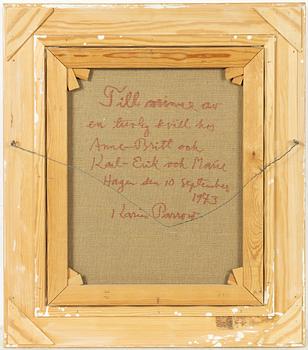 Till minne av
en trevlig kväll hos
Anne-Britt och
Karl-Erik och Marie
Hagen den 10 September
1973
Karin Parrow